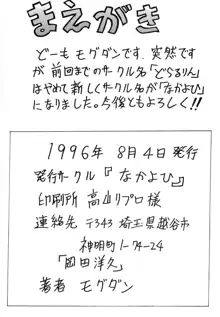 まえがき
どーも モグダンです。突然です
が 前回までのサークル名「どらるりん」
はやめて 新しくサークル名が「なかよひ」
になりました。今後ともよろしく!!
1996年 8月4日発行
発行サークル『なかよひ』
印刷所 高山リプロ様
連絡先 〒343 埼玉県越谷市
神明町1-74-24
「岡田洋久」
著者 モグダン